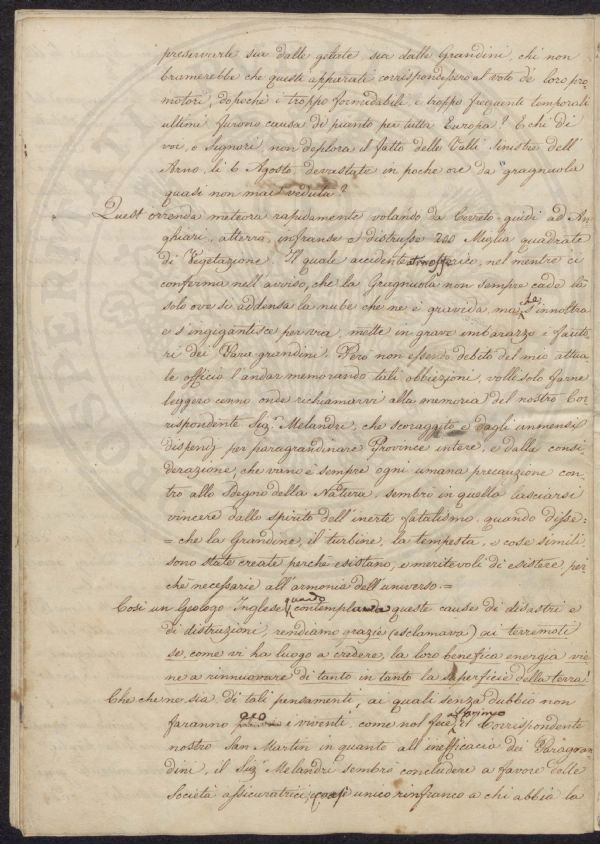 preservarle sia dalle gelate sia dalle Grandini, chi non
bramerebbe che questi apparati corrispondessero al voto de' loro pro-
motori, dopochè i troppo formidabili, e troppo frequenti temporali
ultimi furono causa di pianto per tutta Europa? E chi di
voi, o Signori, non deplora il fatto delle Valli sinistre dell'
Arno, li 6 Agosto, devastate in poche ore da gragnuola
quasi non mai veduta?
Quest' orrenda meteora rapidamente volando da Cerreto-guidi ad An-
ghiari, atterra, infranse e distrusse 200 Miglia quadrate
di Vegetazione. Il quale accidente atmosferico, nel mentre ci
conferma nell'avviso, che la Gragnuola non sempre cada là
solo ove si addensa la nube che ne è gravida, ma che s'innoltra
e s'ingigantisce per via, mette in grave imbarazzo i fauto-
ri dei Paragrandini. Però non essendo debito del mio attua-
le officio l'andar memorando tali obbiezioni, volli solo farne
leggero cenno onde richiamarvi alla memoria del nostro Cor-
rispondente Sig.r Melandri, che scoraggito e dagli immensi
dispendj per paragrandinare Province intere, e dalla consi-
derazione, che vano è sempre ogni umana precauzione con-
tro allo Sdegno della Natura, sembrò in quella lasciarsi
vincere dallo spirito dell'inerte fatalismo, quando disse =
= che la Grandine, il turbine, la tempesta, e cose simili
sono state create perchè esistano, e meritevoli di esistere, per-
chè necessarie all'armonia dell'universo. =
Così un Geologo Inglese quando contemplava queste cause di disastri e
di distruzioni, rendiamo grazie (esclamava) ai terremoti
se, come vi ha luogo a credere, la loro benefica energia vie-
ne a rinnuovare di tanto in tanto la superficie della terra!
Che che ne sia di tali pensamenti, ai quali senza dubbio non
faranno eco i viventi, come nol fece il Corrispondente
nostro San-Martin in quanto all'inefficacia dei Paragran-
dini, il Sig.r Melandri sembrò concludere a favore delle
Società assicuratrici, quasi unico rinfranco a chi abbia la